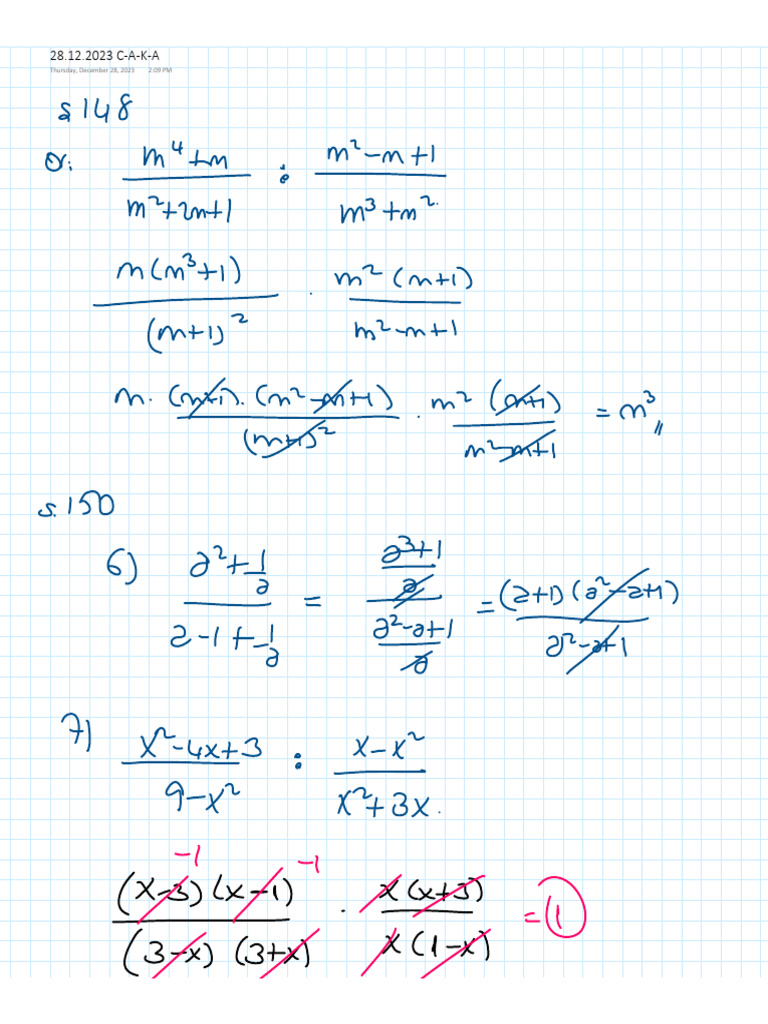 28.12.2023 C-A-K-A
Thursday, December 28, 2023 2:09 PM
s 148
ör: (m⁴+m)/(m²+2m+1) : (m²-m+1)/(m³+m²)
m(m³+1)/(m+1)² · m²(m+1)/(m²-m+1)
m·(m+1)·(m²-m+1)/(m+1)² · m²(m+1)/(m²-m+1) = m³,,
s.150
6) (a²+1/a)/(a-1+1/a) = ((a³+1)/a)/((a²-a+1)/a) = (a+1)(a²-a+1)/(a²-a+1)
7) (x²-4x+3)/(9-x²) : (x-x²)/(x²+3x)
-1 -1
(x-3)(x-1)/((3-x)(3+x)) · x(x+3)/(x(1-x)) = 1